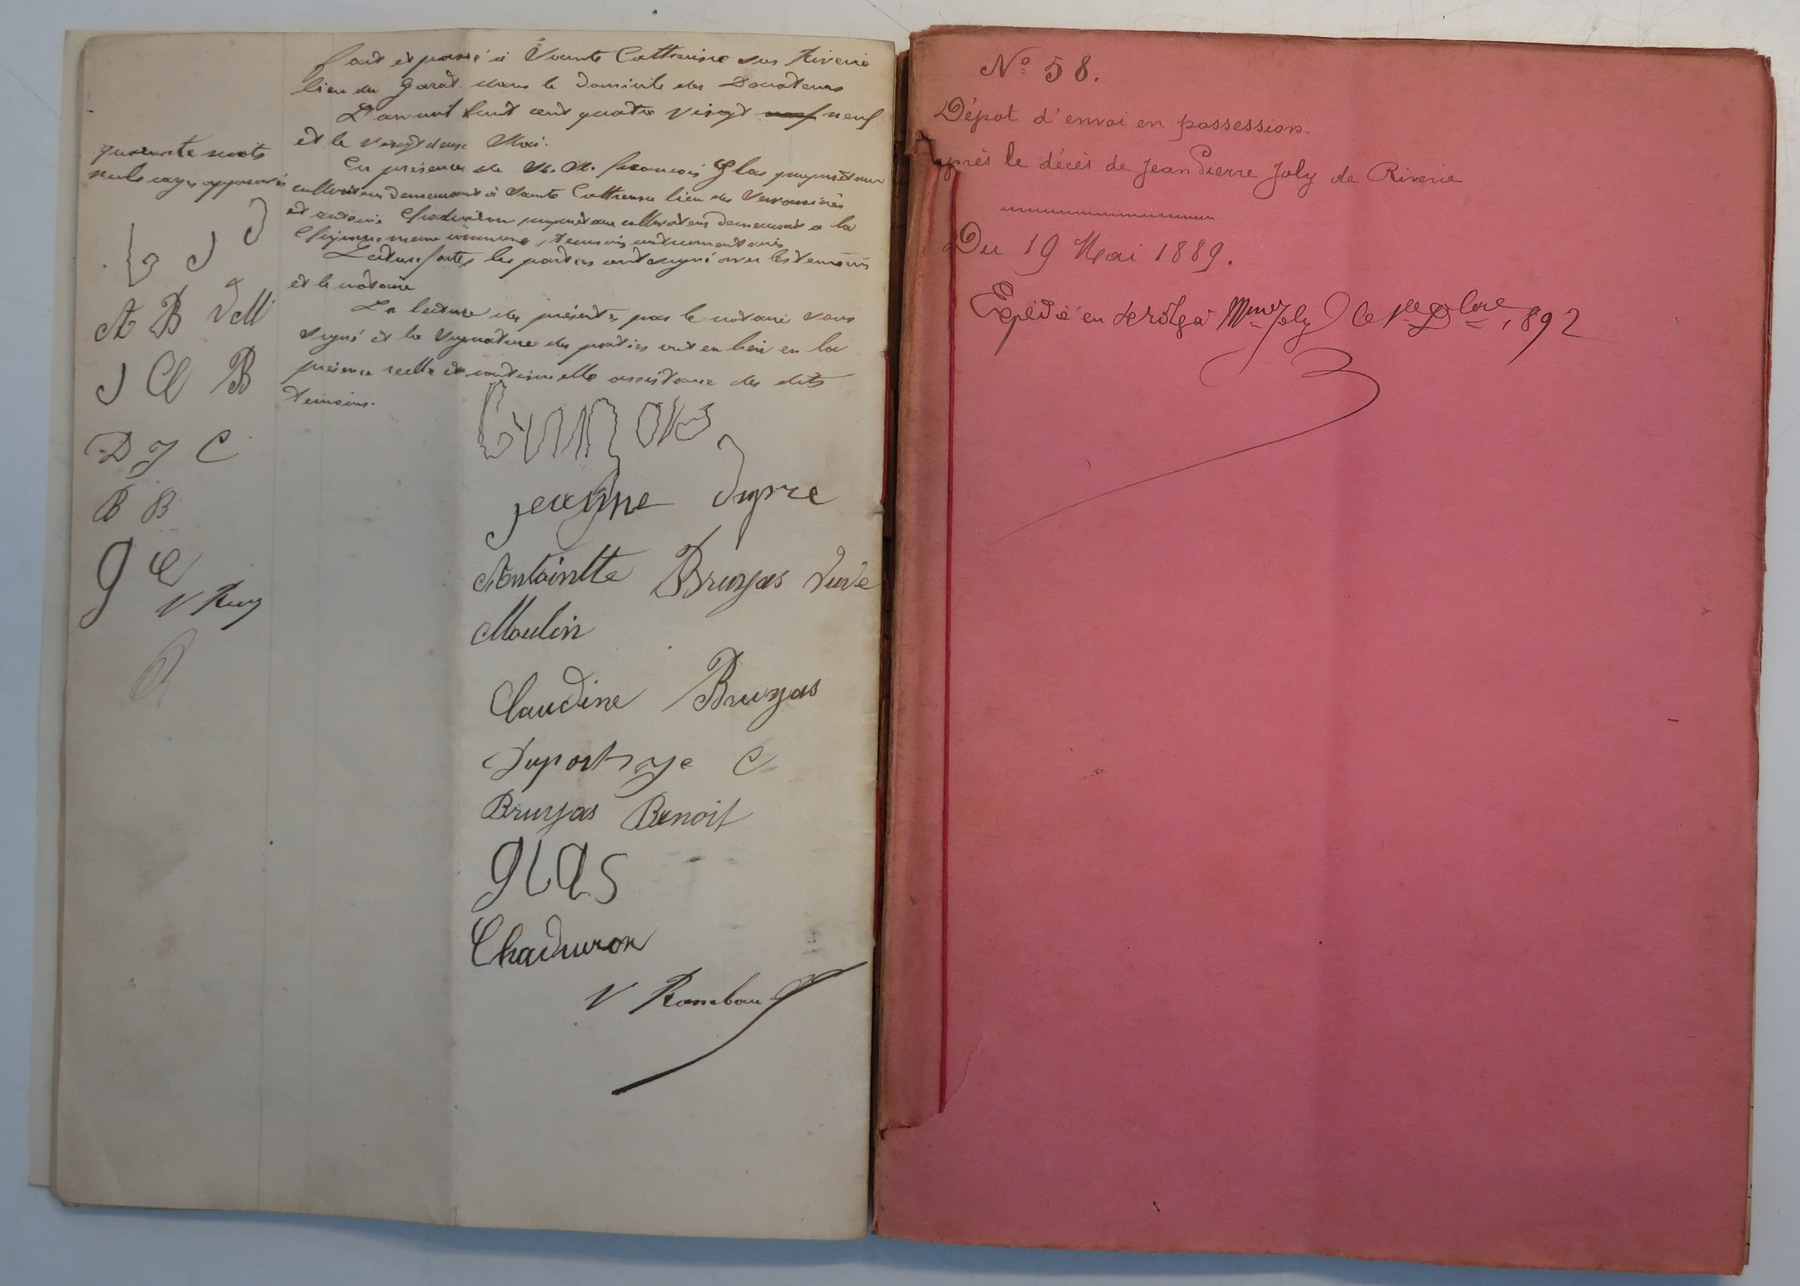 fait et passé à Sainte Catherine sur Riverie
lieu du Garat dans le domicile des Donateurs
L'an mil huit cent quatre vingt neuf neuf
et le vingt deux Mai.
En présence de M. M. francois Glas propriétaire
cultivateur demeurant à Sainte Catherine lieu des
et antoine Chaduiron propriétaire cultivateur demeurant a la
même commune, témoins instrumentaires
Lecture faite, les parties ont signé avec les témoins
et le notaire
La lecture des présentes par le notaire sous
signé et la signature des parties ont eu lieu en la
présence réelle et assistance des dits
témoins.
quarante mots
nuls rayés approuvés
J
A B V M
J Cl B
D J C
B B
g Ch
V Rey
jeanne
Antoinette Bruyas veuve
Moulin
Claudine Bruyas
C
Bruyas Benoit
glas
Chaduiron
V
N° 58.
Dépot d'envoi en possession.
après le décès de Jean Pierre Joly de Riverie
Du 19 Mai 1889.
Expédié en rôles à Mme Joly le 1er Xbre 1892